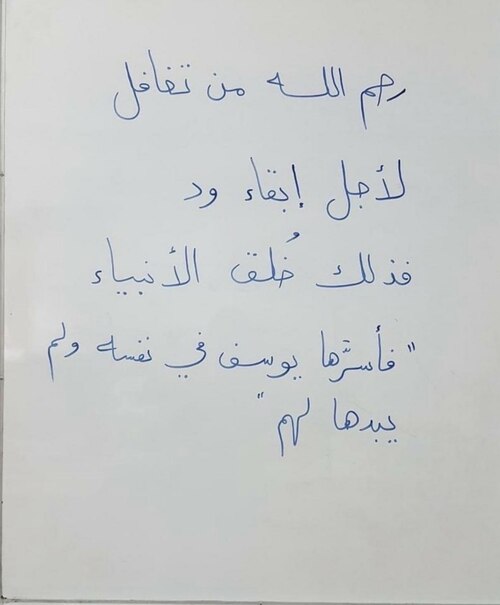 رحم الله من تغافل
لأجل إبقاء ود
فذلك خُلق الأنبياء
"فأسرَّها يوسف في نفسه ولم
يبدها لهم"